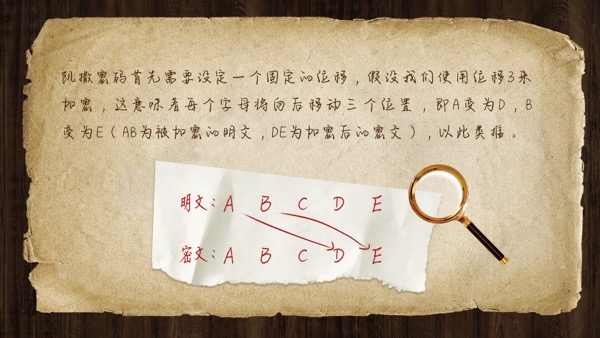 凯撒密码首先需要设定一个固定的位移，假设我们使用位移3来
加密，这意味着每个字母将向后移动三个位置，即A变为D，B
变为E（AB为被加密的明文，DE为加密后的密文），以此类推。
明文：A B C D E
密文：A B C D E